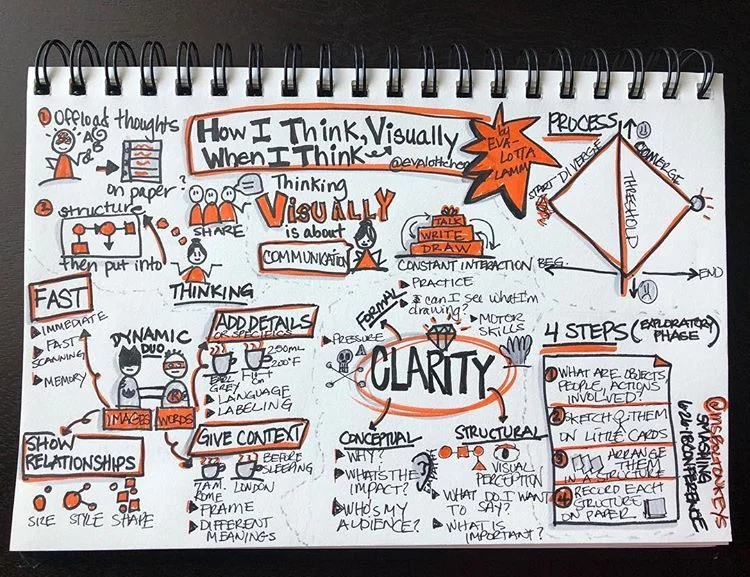 1 Offload thoughts
on paper?
2 structure
then put into
THINKING
How I Think, Visually
When I Think
@evalottchen
by
EVA-
LOTTA
LAMM
SHARE
Thinking
VISUALLY
is about
COMMUNICATION
TALK
WRITE
DRAW
CONSTANT INTERACTION
PROCESS
START
DIVERGE
CONVERGE
THRESHOLD
BEG.
END
FAST
IMMEDIATE
FAST
SCANNING
MEMORY
DYNAMIC
DUO
IMAGES
WORDS
ADD DETAILS
OR SPECIFICS
250ML
200°F
EARL
GREY
CM
LANGUAGE
LABELING
SHOW
RELATIONSHIPS
SIZE STYLE SHAPE
GIVE CONTEXT
BEFORE
SLEEPING
7AM
ROME
LONDON
FRAME
DIFFERENT
MEANINGS
FORMAL
PRACTICE
can I see what I'm
drawing?
MOTOR
SKILLS
PRESSURE
CLARITY
CONCEPTUAL
WHY?
WHAT'S THE
IMPACT?
WHO'S MY
AUDIENCE?
STRUCTURAL
VISUAL
PERCEPTION
WHAT DO I WANT
TO SAY?
WHAT IS
IMPORTANT?
4 STEPS (EXPLORATORY
PHASE)
1 WHAT ARE OBJECTS,
PEOPLE, ACTIONS
INVOLVED?
2 SKETCH THEM
ON LITTLE CARDS
3 ARRANGE
THEM
IN A STRUCTURE
4 RECORD EACH
STRUCTURE
ON PAPER
SMASHING
CONFERENCE